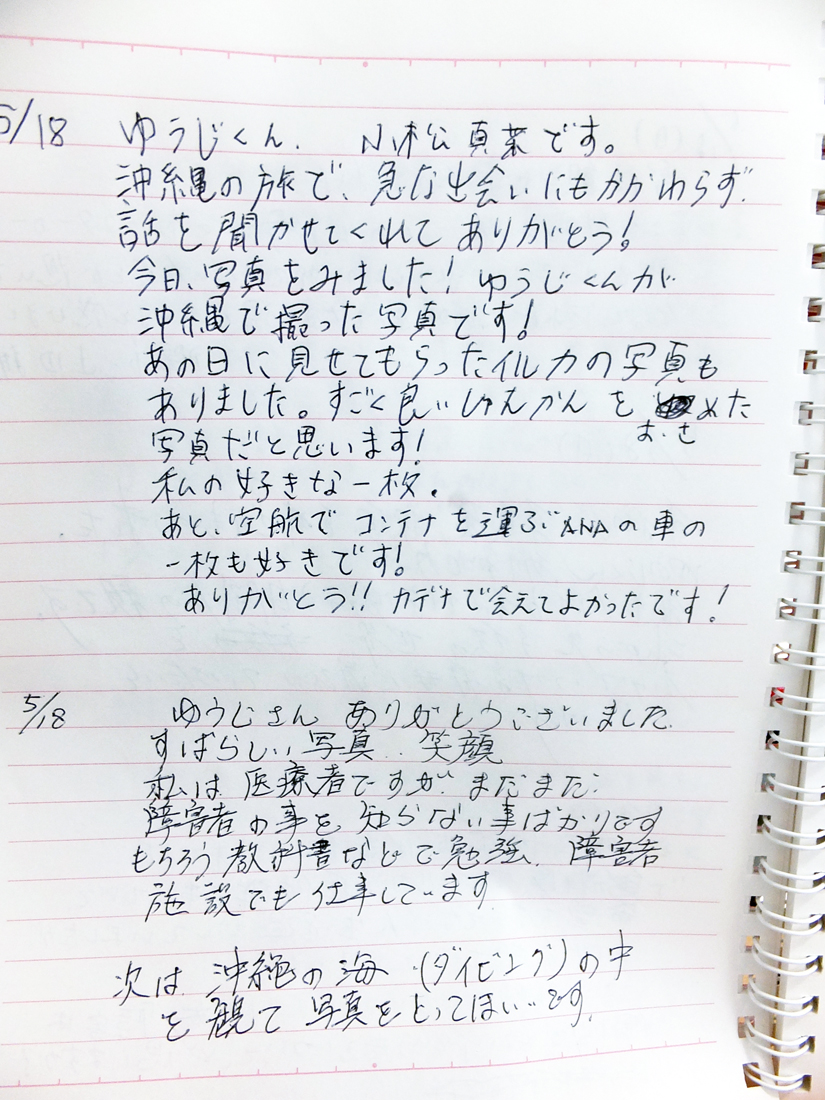 5/18 ゆうじくん. 小松真菜です。
沖縄の旅で、急な出会いにもかかわらず、
話を聞かせてくれてありがとう!
今日、写真をみました! ゆうじくんが
沖縄で撮った写真です!
あの日に見せてもらったイルカの写真も
ありました。すごく良いしゅんかんを めた
おさ
写真だと思います!
私の好きな一枚。
あと、空航でコンテナを運ぶANAの車の
一枚も好きです!
ありがとう!! カデナで会えてよかったです!
5/18 ゆうじさん ありがとうございました.
すばらしい写真..笑顔
私は医療者ですが.まだまだ.
障害者の事を知らない事ばかりです
もちろう教科書などで勉強.障害者
施設でも仕事しています.
次は 沖縄の海 (ダイビング)の中
を観て 写真をとってほしいです.